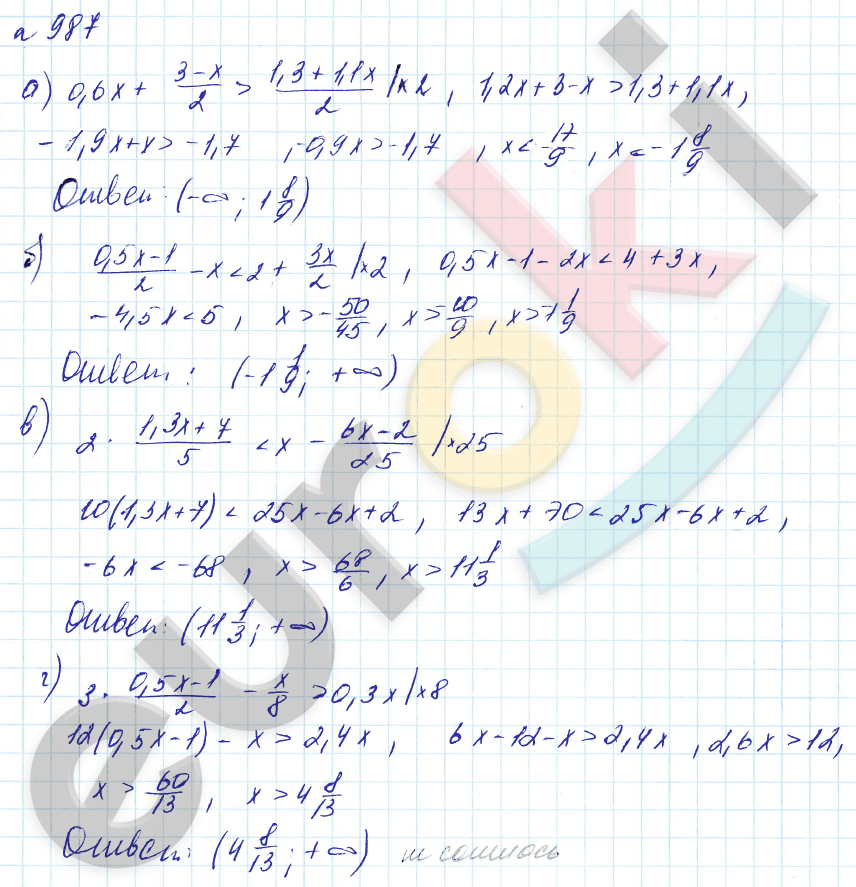 н 987
а) 0,6x + (3-x)/2 > (1,3+1,1x)/2 |×2, 1,2x+3-x>1,3+1,1x,
-1,9x+x>-1,7, -0,9x>-1,7, x<-17/9, x<-1 8/9
Ответ: (-∞; 1 8/9)
б) (0,5x-1)/2 - x < 2 + 3x/2 |×2, 0,5x-1-2x<4+3x,
-4,5x<5, x>-50/45, x>-10/9, x>-1 1/9
Ответ: (-1 1/9; +∞)
в) 2· (1,3x+7)/5 < x - (6x-2)/25 |×25
10(1,3x+7) < 25x-6x+2, 13x+70<25x-6x+2,
-6x < -68, x > 68/6, x > 11 1/3
Ответ: (11 1/3; +∞)
г) 3· (0,5x-1)/2 - x/8 > 0,3x |×8
12(0,5x-1) - x > 2,4x, 6x-12-x>2,4x, 2,6x>12,
x > 60/13, x > 4 8/13
Ответ: (4 8/13; +∞)
euroki